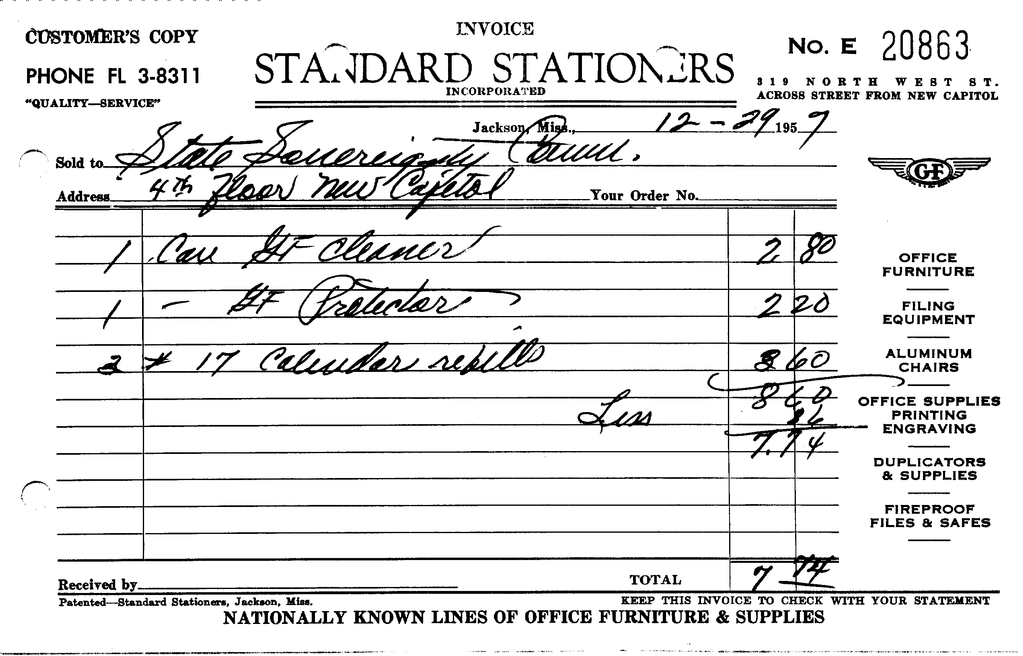 INVOICE
CUSTOMER'S COPY
No. E 20863
PHONE FL 3-8311
STANDARD STATIONERS
INCORPORATED
319 NORTH WEST ST.
"QUALITY—SERVICE"
ACROSS STREET FROM NEW CAPITOL
Jackson, Miss., 12-29 1957
Sold to State Sovereignty Comm.
Address 4th Floor New Capitol Your Order No.
GF
1 Can GF Cleaner 2 80
1 - GF Protector 2 20
3 # 17 Calendar refills 3 60
8 60
Less 86
7.74
OFFICE
FURNITURE
FILING
EQUIPMENT
ALUMINUM
CHAIRS
OFFICE SUPPLIES
PRINTING
ENGRAVING
DUPLICATORS
& SUPPLIES
FIREPROOF
FILES & SAFES
Received by TOTAL 7 74
Patented—Standard Stationers, Jackson, Miss. KEEP THIS INVOICE TO CHECK WITH YOUR STATEMENT
NATIONALLY KNOWN LINES OF OFFICE FURNITURE & SUPPLIES